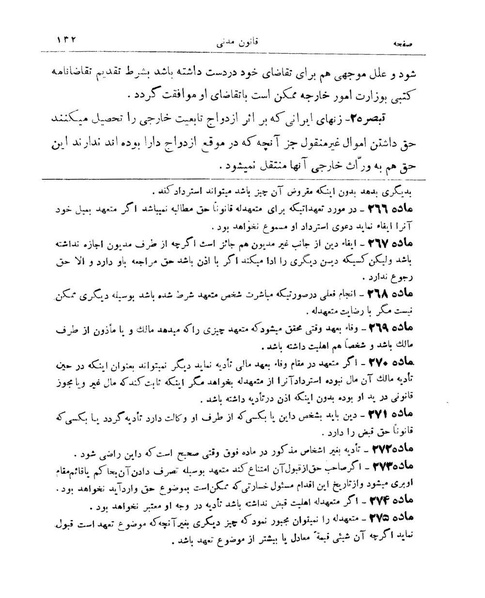 صفحه قانون مدنی ۱۳۲
شود و علل موجهی هم برای تقاضای خود دردست داشته باشد بشرط تقدیم تقاضانامه
کتبی بوزارت امور خارجه ممکن است باتقاضای او موافقت گردد .
تبصره۲- زنهای ایرانی که بر اثر ازدواج تابعیت خارجی را تحصیل میکنند
حق داشتن اموال غیرمنقول جز آنچه که در موقع ازدواج دارا بوده اند ندارند این
حق هم به ورّاث خارجی آنها منتقل نمیشود .
بدیگری بدهد بدون اینکه مقروض آن چیز باشد میتواند استرداد کند .
ماده ۲۶۶ - در مورد تعهداتیکه برای متعهدله قانوناً حق مطالبه نمیباشد اگر متعهد بمیل خود
آنرا ایفاء نماید دعوی استرداد او مسموع نخواهد بود .
ماده ۲۶۷ - ایفاء دین از جانب غیر مدیون هم جائز است اگرچه از طرف مدیون اجازه نداشته
باشد ولیکن کسیکه دین دیگری را ادا میکند اگر با اذن باشد حق مراجعه باو دارد و الا حق
رجوع ندارد .
ماده ۲۶۸ - انجام فعلی درصورتیکه مباشرت شخص متعهد شرط شده باشد بوسیله دیگری ممکن
نیست مگر با رضایت متعهدله .
ماده ۲۶۹ - وفاء بعهد وقتی محقق میشود که متعهد چیزی را که میدهد مالك و یا مأذون از طرف
مالك باشد و شخصاً هم اهلیت داشته باشد .
ماده ۲۷۰ - اگر متعهد در مقام وفاء بعهد مالی تأدیه نماید دیگر نمیتواند بعنوان اینکه در حین
تأدیه مالك آن مال نبوده استرداد آنرا از متعهدله بخواهد مگر اینکه ثابت کند که مال غیر و با مجوز
قانونی در ید او بوده بدون اینکه اذن درتأدیه داشته باشد .
ماده ۲۷۱ - دین باید بشخص داین یا بکسی که از طرف او وکالت دارد تأدیه گردد یا بکسی که
قانوناً حق قبض را دارد .
ماده۲۷۲ - تأدیه بغیر اشخاص مذکور در ماده فوق وقتی صحیح است که داین راضی شود .
ماده۲۷۳ - اگرصاحب حق ازقبول آن امتناع کند متعهد بوسیله تصرف دادن آن بحاکم یاقائم‌مقام
اوبری میشود وازتاریخ این اقدام مسئول خسارتی که ممکن است بموضوع حق وارد آید نخواهد بود .
ماده ۲۷۴ - اگر متعهدله اهلیت قبض نداشته باشد تأدیه در وجه او معتبر نخواهد بود .
ماده ۲۷۵ - متعهدله را نمیتوان مجبور نمود که چیز دیگری بغیر آنچه که موضوع تعهد است قبول
نماید اگرچه آن شیئی قیمةً معادل یا بیشتر از موضوع تعهد باشد .